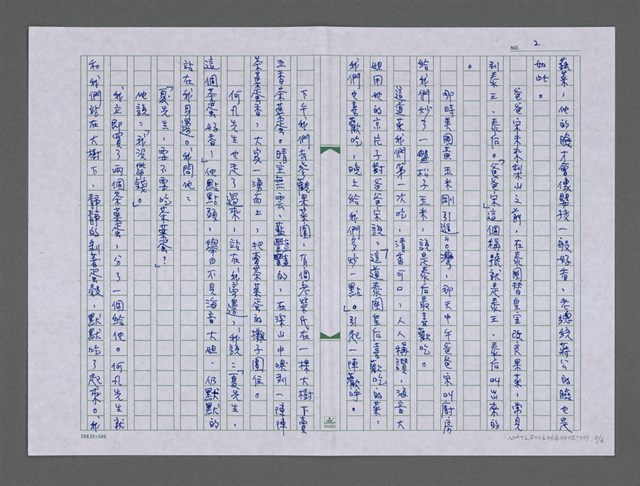 NO. 2
蔬菜，他的臉才會像嬰孩一般好看，老總統蔣公的臉也是
如此。
爸爸宋未來梨山之前，在泰國替皇室改良果菜，常見
到泰王、泰后。爸爸宋這個稱號就是泰王、泰后叫出來的
。
那時美國黃玉米剛引進台灣，那天中午爸爸宋叫廚房
給我們炒了一盤松子玉米，說是泰后最喜歡吃。
這道菜我們第一次吃，清香可口，人人稱讚，海音大
姐用她的京片子對爸爸宋說：「這道泰國皇后喜歡吃的菜，
我們也喜歡吃，晚上給我們多炒一點。」引起一陣歡呼。
下午我們有參觀果菜園，有個老榮民在一棵大樹下賣
五香茶葉蛋。晴空無雲，藍艷艷的，在深山中嗅到一陣陣
茶葉蛋香，大家一湧而上，把賣茶葉蛋的攤子圍住。
何凡先生也走了過來，站在我旁邊，我說：「夏先生，
這個茶蛋好香！」他點點頭，
不見海音大姐，仍默默的
站在我身邊。我問他：
「夏先生，要不要吃茶葉蛋？」
他說：「我沒帶錢。」
我立即買了兩個茶葉蛋，分了一個給他。何凡先生就
和我們站在大樹下，靜靜的剝著蛋殼，默默吃了起來。我
20X25=500